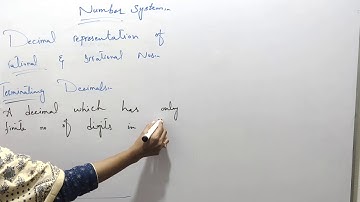 Number System..
Decimal representation of
rational & Irrational Nos.
Terminating Decimals..
A decimal which has only
finite no of digits in